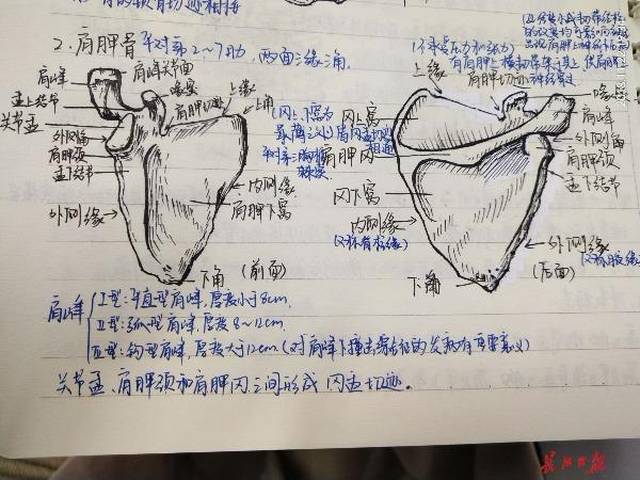 2.肩胛骨 平对第2~7肋,两面三缘三角。
肩峰
肩峰关节面
喙突
肩胛切迹
上缘
上角
盂上结节
关节盂
外侧角
肩胛颈
盂下结节
外侧缘
内侧缘
肩胛下窝
下角
(前面)
上缘
肩胛切迹
喙突
肩峰
外侧角
肩胛颈
盂下结节
冈上窝
肩胛冈
冈下窝
内侧缘
(又称脊柱缘)
外侧缘
(又称腋缘)
下角
(后面)
肩峰
I型:平直型肩峰,厚度小于8cm.
II型:弧型肩峰,厚度8~12cm.
III型:钩型肩峰,厚度大于12cm.(对肩峰下撞击综合征的发病有重要意义)
关节盂、肩胛颈和肩胛冈之间形成冈盂切迹。
长江日报